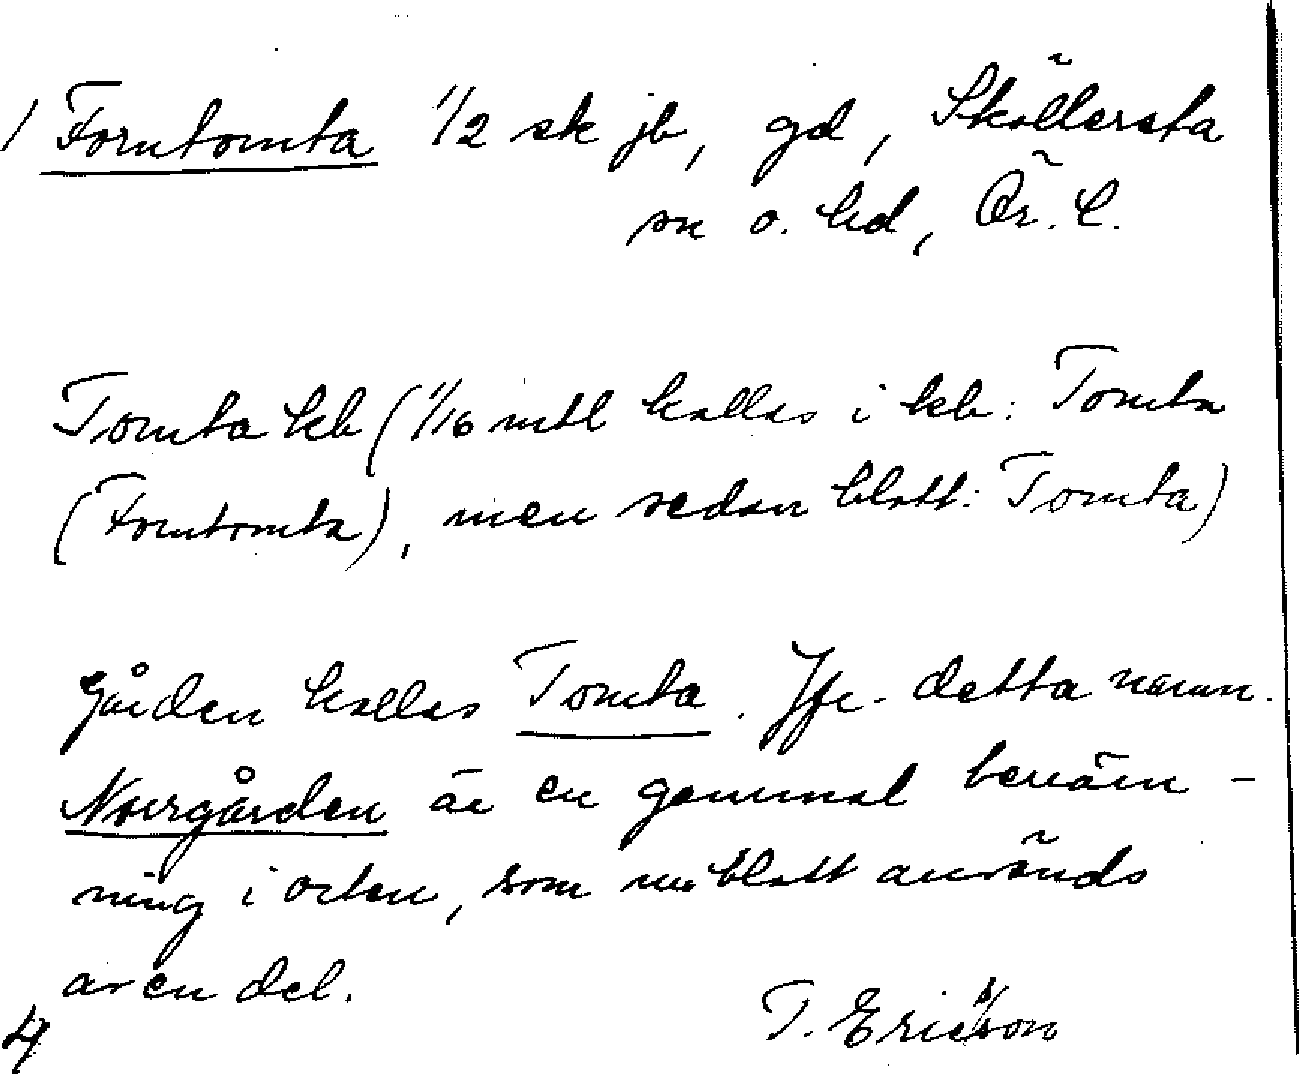 / Forntomta 1/2 sk jb, gd, Sköllersta
sn o. hd, Ör. l.
Tomta kb (1/16 mtl kallas i kb: Tomta
(Forntomta), men sedan blott: Tomta)
Gården kallas Tomta. Jfr. detta namn.
Norrgården är en gammal benäm-
ning i orten, som nu blott används
av en del.
4 T. Ericsson